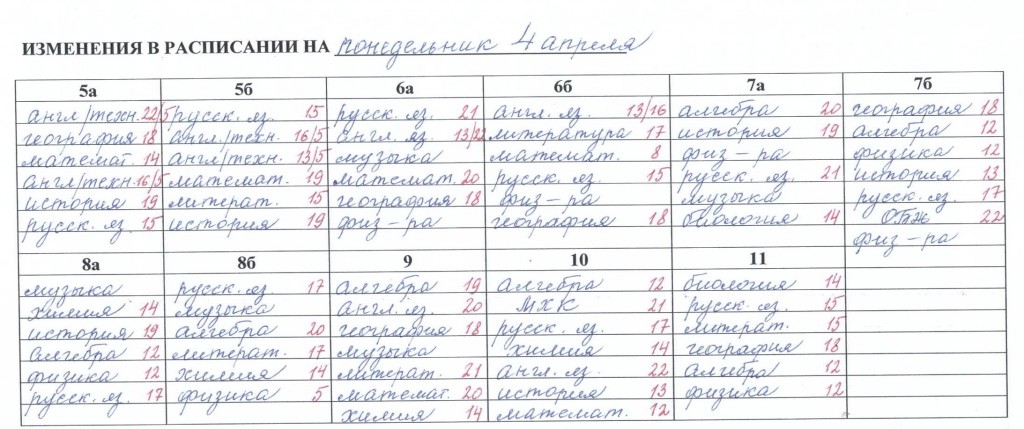 ИЗМЕНЕНИЯ В РАСПИСАНИИ НА понедельник 4 апреля
5а 5б 6а 6б 7а 7б
англ/техн. 22/5 русск. яз. 15 русск. яз. 21 англ. яз. 13/16 алгебра 20 география 18
география 18 англ/техн. 16/5 англ. яз. 13/22 литература 17 история 19 алгебра 12
математ. 14 англ/техн. 13/5 музыка математ. 8 физ-ра физика 12
англ/техн. 16/5 математ. 19 математ. 20 русск. яз. 15 русск. яз. 21 история 13
история 19 литерат. 15 география 18 физ-ра музыка русск. яз. 17
русск. яз. 15 история 19 физ-ра география 18 биология 14 ОБЖ 22
физ-ра
8а 8б 9 10 11
музыка русск. яз. 17 алгебра 19 алгебра 12 биология 14
химия 14 музыка англ. яз. 20 МХК 21 русск. яз. 15
история 19 алгебра 20 география 18 русск. яз. 17 литерат. 15
алгебра 12 литерат. 17 музыка химия 14 география 18
физика 12 химия 14 литерат. 21 англ. яз. 22 алгебра 12
русск. яз. 17 физика 5 математ. 20 история 13 физика 12
химия 14 математ. 12